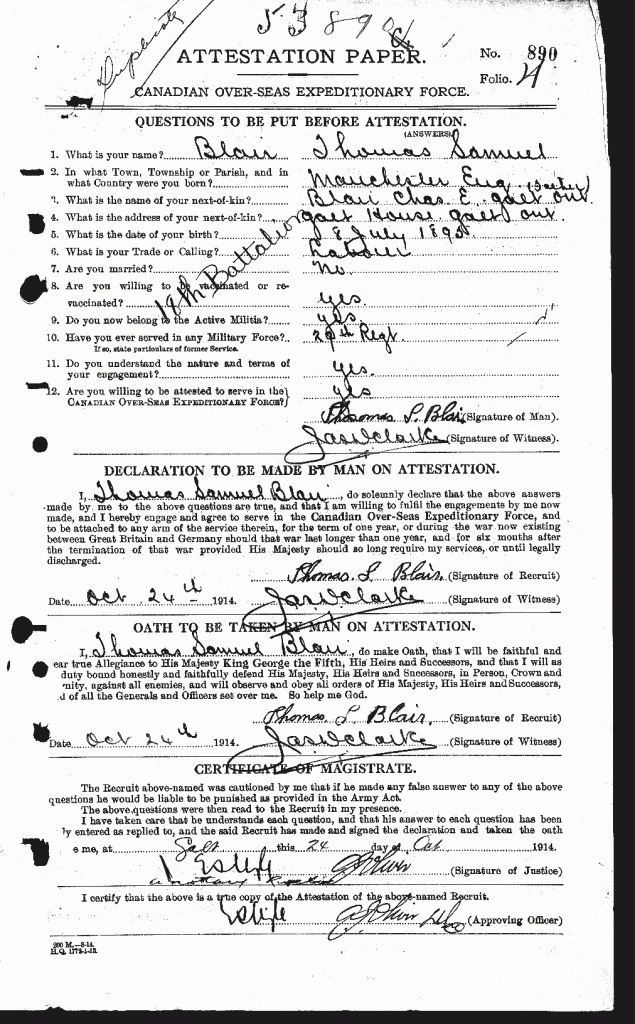 Duplicate
53890
ATTESTATION PAPER.
No. 890
Folio. 4
CANADIAN OVER-SEAS EXPEDITIONARY FORCE.
QUESTIONS TO BE PUT BEFORE ATTESTATION.
(ANSWERS)
1. What is your name? Blair Thomas Samuel
2. In what Town, Township or Parish, and in
what Country were you born? Manchester Eng
3. What is the name of your next-of-kin? Blair Chas E. galt ont (Father)
4. What is the address of your next-of-kin? galt House galt ont.
5. What is the date of your birth? 8 July 1895
6. What is your Trade or Calling? Labourer
7. Are you married? No.
8. Are you willing to be vaccinated or re-
vaccinated? yes.
9. Do you now belong to the Active Militia? yes
10. Have you ever served in any Military Force? 29th Regt.
If so, state particulars of former Service.
11. Do you understand the nature and terms of
your engagement? yes.
12. Are you willing to be attested to serve in the
CANADIAN OVER-SEAS EXPEDITIONARY FORCE? yes
18th Battalion
Thomas S. Blair (Signature of Man).
Jas W Clarke (Signature of Witness).
DECLARATION TO BE MADE BY MAN ON ATTESTATION.
I, Thomas Samuel Blair, do solemnly declare that the above answers
made by me to the above questions are true, and that I am willing to fulfil the engagements by me now
made, and I hereby engage and agree to serve in the Canadian Over-Seas Expeditionary Force, and
to be attached to any arm of the service therein, for the term of one year, or during the war now existing
between Great Britain and Germany should that war last longer than one year, and for six months after
the termination of that war provided His Majesty should so long require my services, or until legally
discharged.
Thomas. S. Blair. (Signature of Recruit)
Date Oct 24th 1914. Jas W Clarke (Signature of Witness)
OATH TO BE TAKEN BY MAN ON ATTESTATION.
I, Thomas Samuel Blair, do make Oath, that I will be faithful and
ear true Allegiance to His Majesty King George the Fifth, His Heirs and Successors, and that I will as
duty bound honestly and faithfully defend His Majesty, His Heirs and Successors, in Person, Crown and
nity, against all enemies, and will observe and obey all orders of His Majesty, His Heirs and Successors,
d of all the Generals and Officers set over me. So help me God.
Thomas S. Blair. (Signature of Recruit)
Date Oct 24th 1914. Jas W Clarke (Signature of Witness)
CERTIFICATE OF MAGISTRATE.
The Recruit above-named was cautioned by me that if he made any false answer to any of the above
questions he would be liable to be punished as provided in the Army Act.
The above questions were then read to the Recruit in my presence.
I have taken care that he understands each question, and that his answer to each question has been
ly entered as replied to, and the said Recruit has made and signed the declaration and taken the oath
e me, at Galt this 24 day of Oct 1914.
(Signature of Justice)
I certify that the above is a true copy of the Attestation of the above-named Recruit.
(Approving Officer)
200 M.—8-14.
H.Q. 1772-1-13.